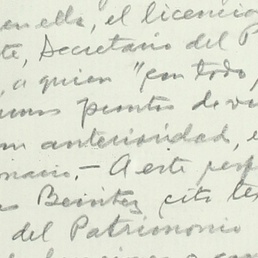 en ella, el licencia
te, Secretario del P
, a quien "con todo,
unos puntos de vi
on anterioridad, e
nario.- A este per
s Benitez cito te
del Patrimonio